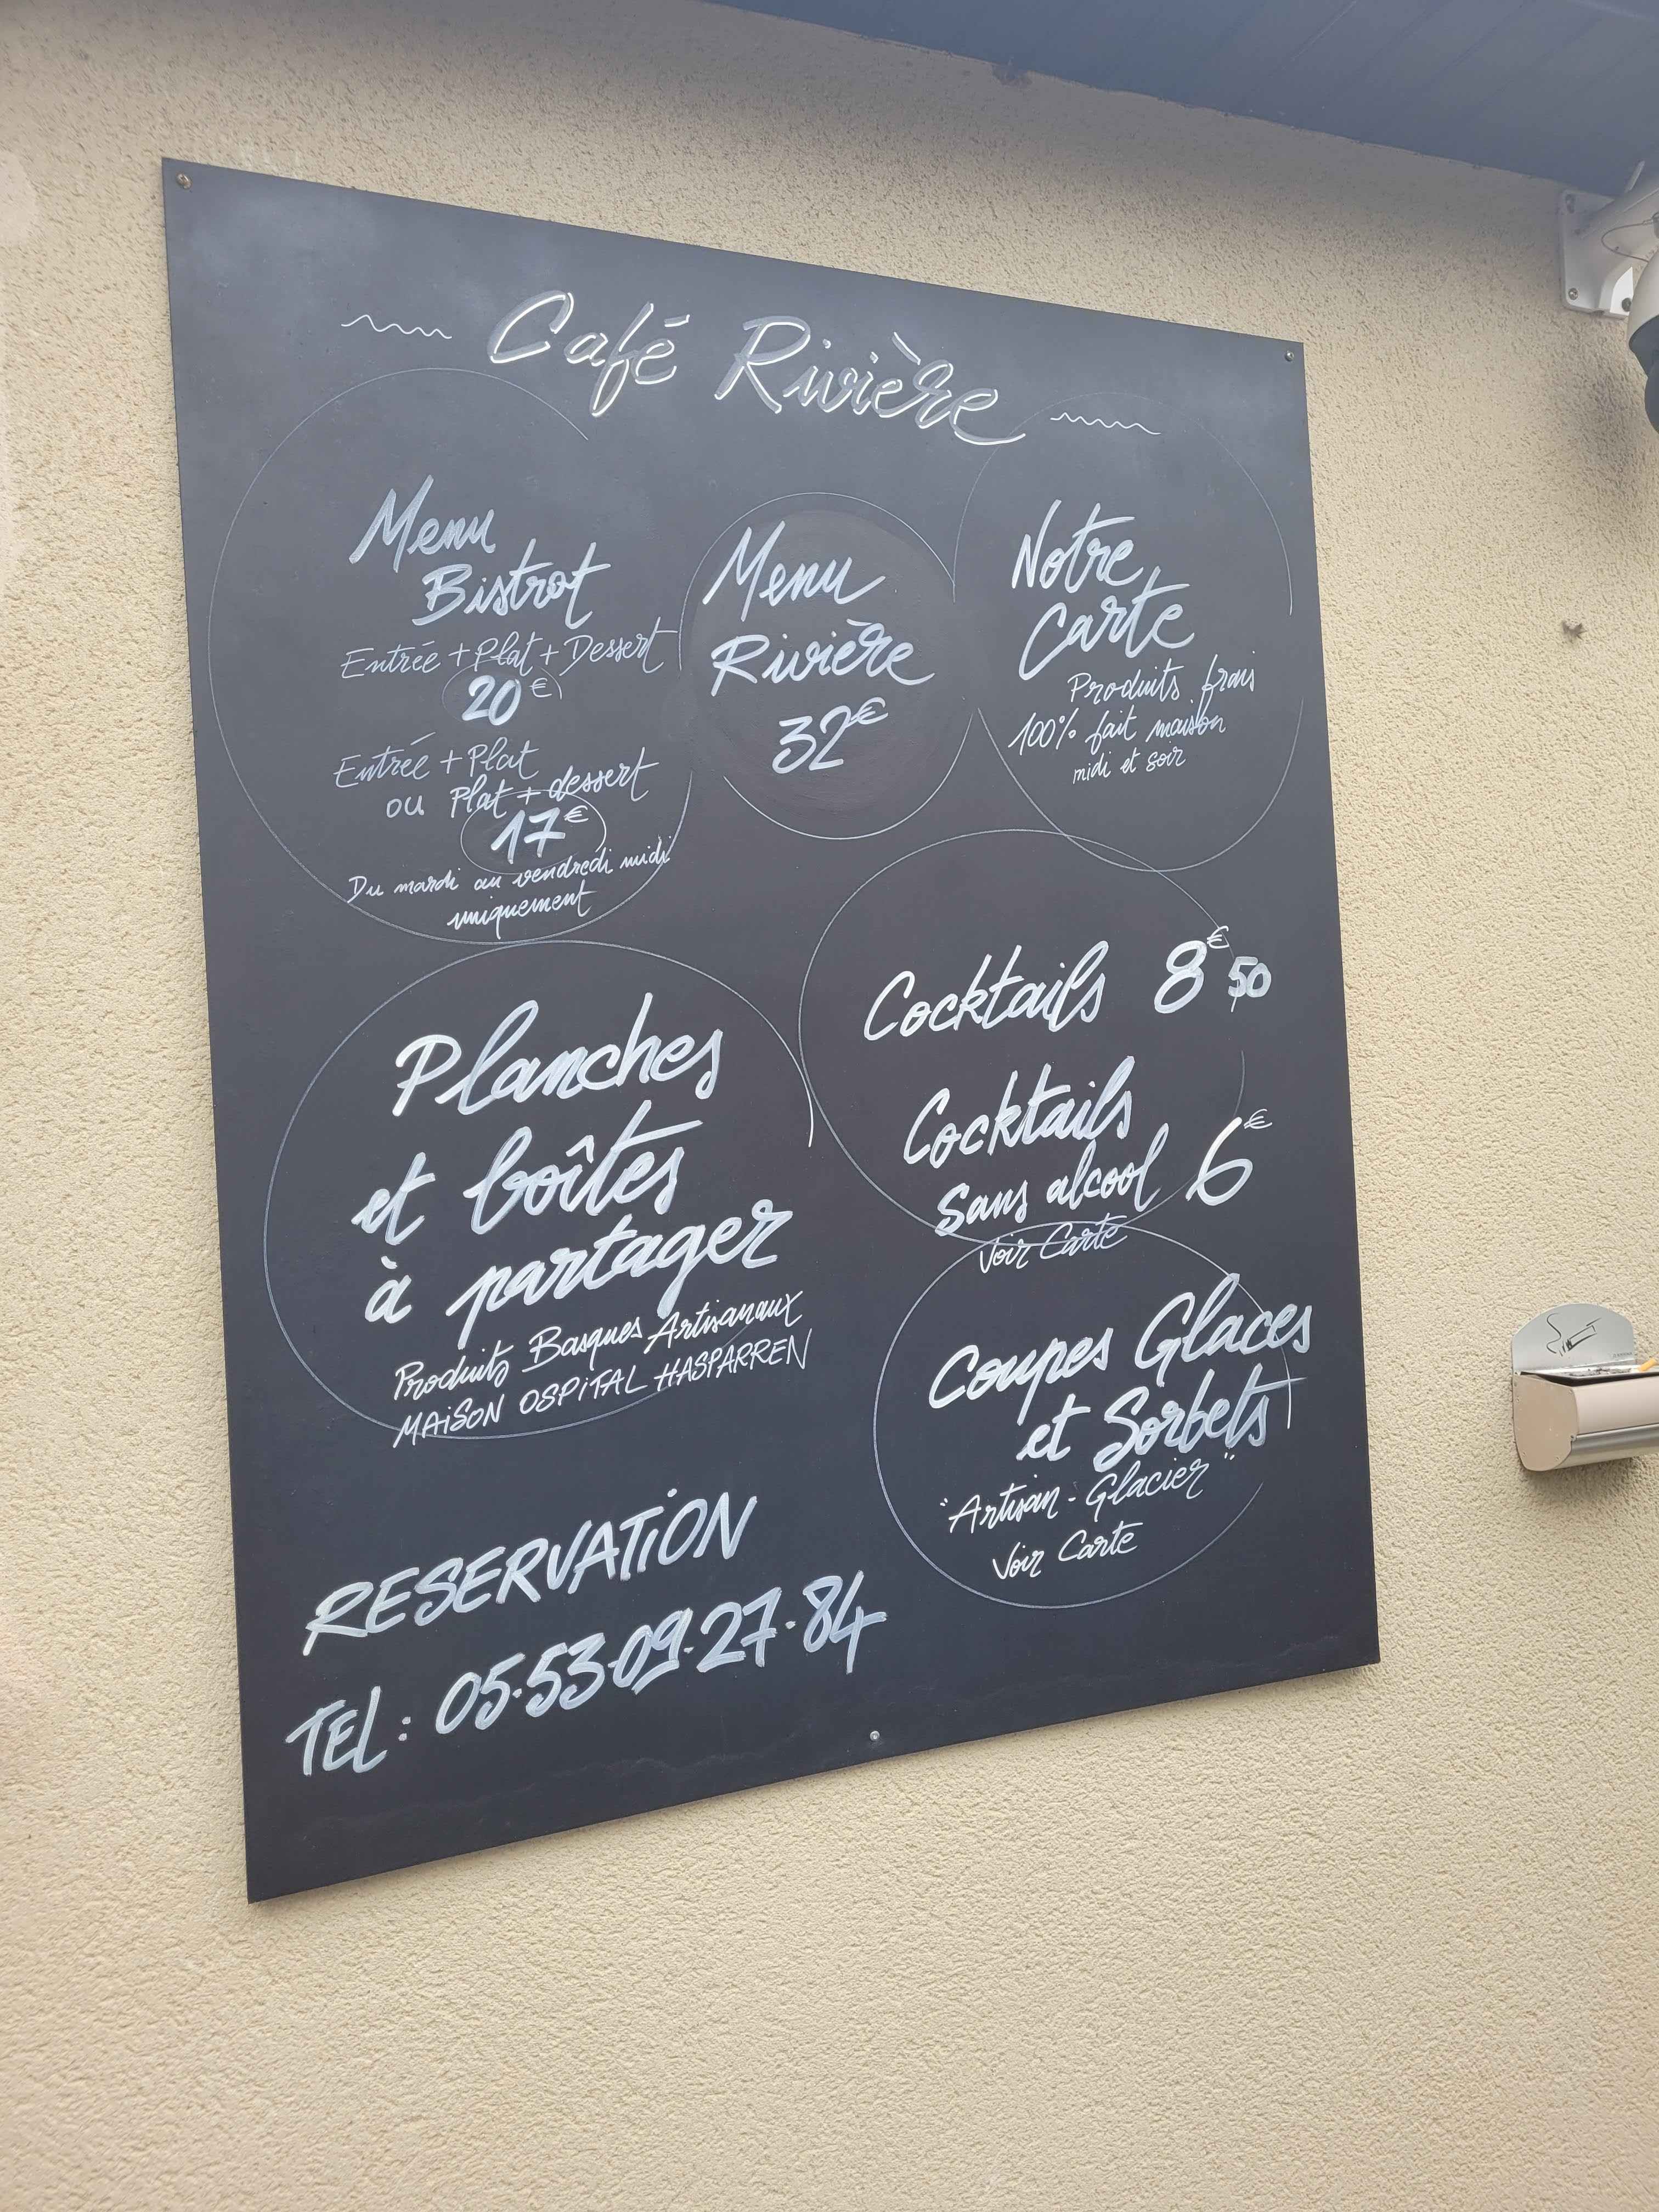 Café Rivière
Menu
Bistrot
Entrée + Plat + Dessert
20€
Entrée + Plat
ou Plat + dessert
17€
Du mardi au vendredi midi
uniquement
Menu
Rivière
32€
Notre
Carte
Produits frais
100% fait maison
midi et soir
Planches
et boîtes
à partager
Produits Basques Artisanaux
MAISON OSPITAL HASPARREN
Cocktails 8€50
Cocktails
sans alcool 6€
Voir Carte
Coupes Glaces
et Sorbets
"Artisan-Glacier"
Voir Carte
RESERVATION
TEL: 05.53.09.27.84